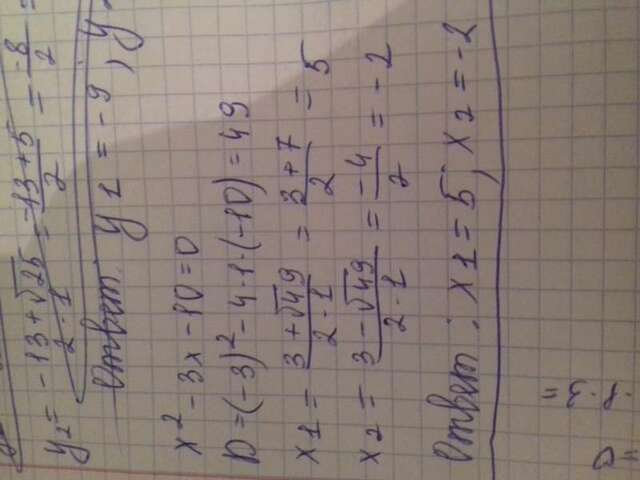 y₂ = (-13+√25)/(2·1) = (-13+5)/2 = -8/2 =
Ответ: y1 = -9, y
x² - 3x - 10 = 0
D = (-3)² - 4·1·(-10) = 49
x1 = (3+√49)/(2·1) = (3+7)/2 = 5
x2 = (3-√49)/(2·1) = -4/2 = -2
Ответ: x1 = 5, x2 = -2